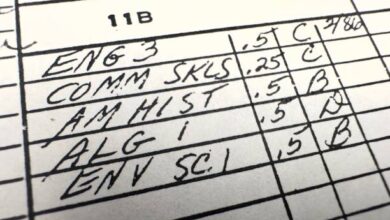 11B
ENG 3 .5 C 7/86
COMM SKLS .25 C
AM HIST .5 B
ALG 1 .5 D
ENV SC. 1 .5 B